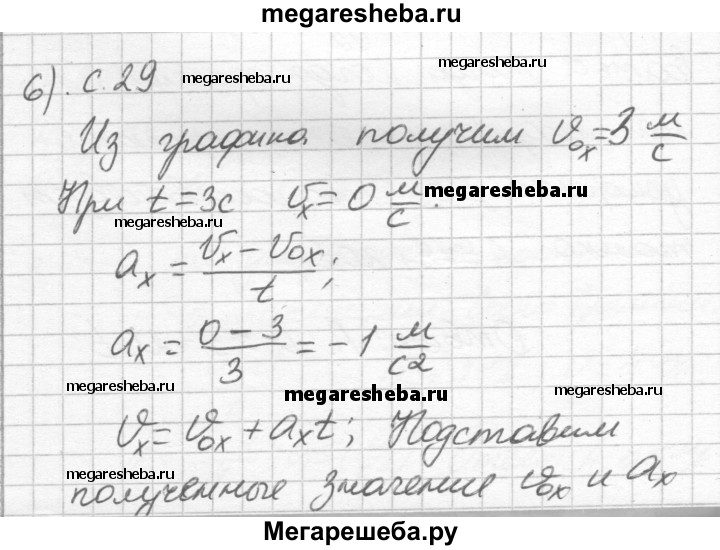 megaresheba.ru
6). с.29 megaresheba.ru megaresheba.ru
Из графика получим v₀ₓ=3 м/с
При t=3с vₓ=0 м/с. megaresheba.ru
megaresheba.ru
aₓ = (vₓ - v₀ₓ)/t;
aₓ = (0 - 3)/3 = -1 м/с2
megaresheba.ru megaresheba.ru megaresheba.ru
vₓ = v₀ₓ + aₓt; Подставим
megaresheba.ru
полученные значение v₀ₓ и aₓ
Мегарешеба.ру